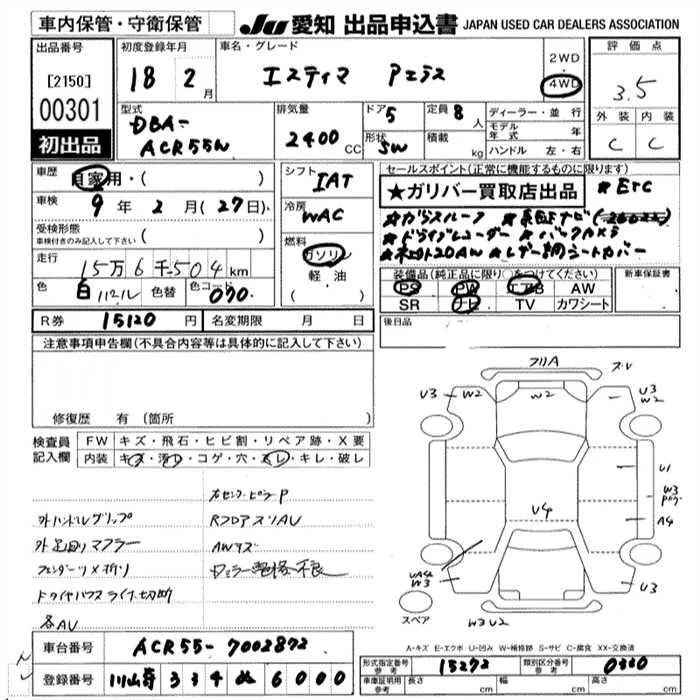 車内保管・守衛保管
JU 愛知 出品申込書 JAPAN USED CAR DEALERS ASSOCIATION
出品番号
[2150]
00301
初出品
初度登録年月
18 2月
車名・グレード
エスティマ アエラス
2WD
4WD
評価点
3.5
外装 内装
C C
型式
DBA-
ACR55W
排気量
2400 CC
ドア 5
形状 SW
定員 8 人
積載 kg
ディーラー・並行
モデル年式 年
ハンドル 左・右
車歴
自家用・( )
車検
9 年 2 月 (27日)
受検形態
車検付きのみ記入して下さい ( )
走行
15万6千504km
色
白 パール 色替 色コード 070
シフト
IAT
冷房
WAC
燃料
ガソリン
軽・油
( )
セールスポイント(正常に機能するものに限ります)
★ガリバー買取店出品 ★ETC
★ガラスルーフ
★ドライブレコーダー ★バックカメラ
★社外20AW ★レザー調シートカバー
装備品(純正品に限り○をつけてください)
PS PW エアB AW
SR ナビ TV カワシート
新車保証書
後日品
R券 15120 円 名変期限 月 日
注意事項申告欄(不具合内容等は具体的に記入して下さい)
修復歴 有(箇所
検査員記入欄
FW キズ・飛石・ヒビ割・リペア跡・X要
内装 キズ・汚レ・コゲ・穴・スレ・キレ・破レ
右センターピラーP
外ハンドルグリップ RフロアスリAV
外足回りマフラー AWキズ
フェンダーツメ折リ
各AV
フリA ズレ
U3 W2 W2 U3 W2
U1
W3
A4
U4
UA4 W3
U3
W3 U2
スペア
A-キズ E-エクボ U-凹み W-補修跡 S-サビ C-腐食 XX-交換済
車台番号 ACR55-7002872
登録番号 334 ぬ 6000
形式指定番号 参考 15272 類別区分番号 参考 0330
車庫証明用 参考 長さ cm 幅 cm 高さ cm